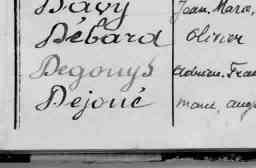 Davy Jean, Marie,
Débard Olivier
Degouys Adrien, Fran
Dejoué marc, aug